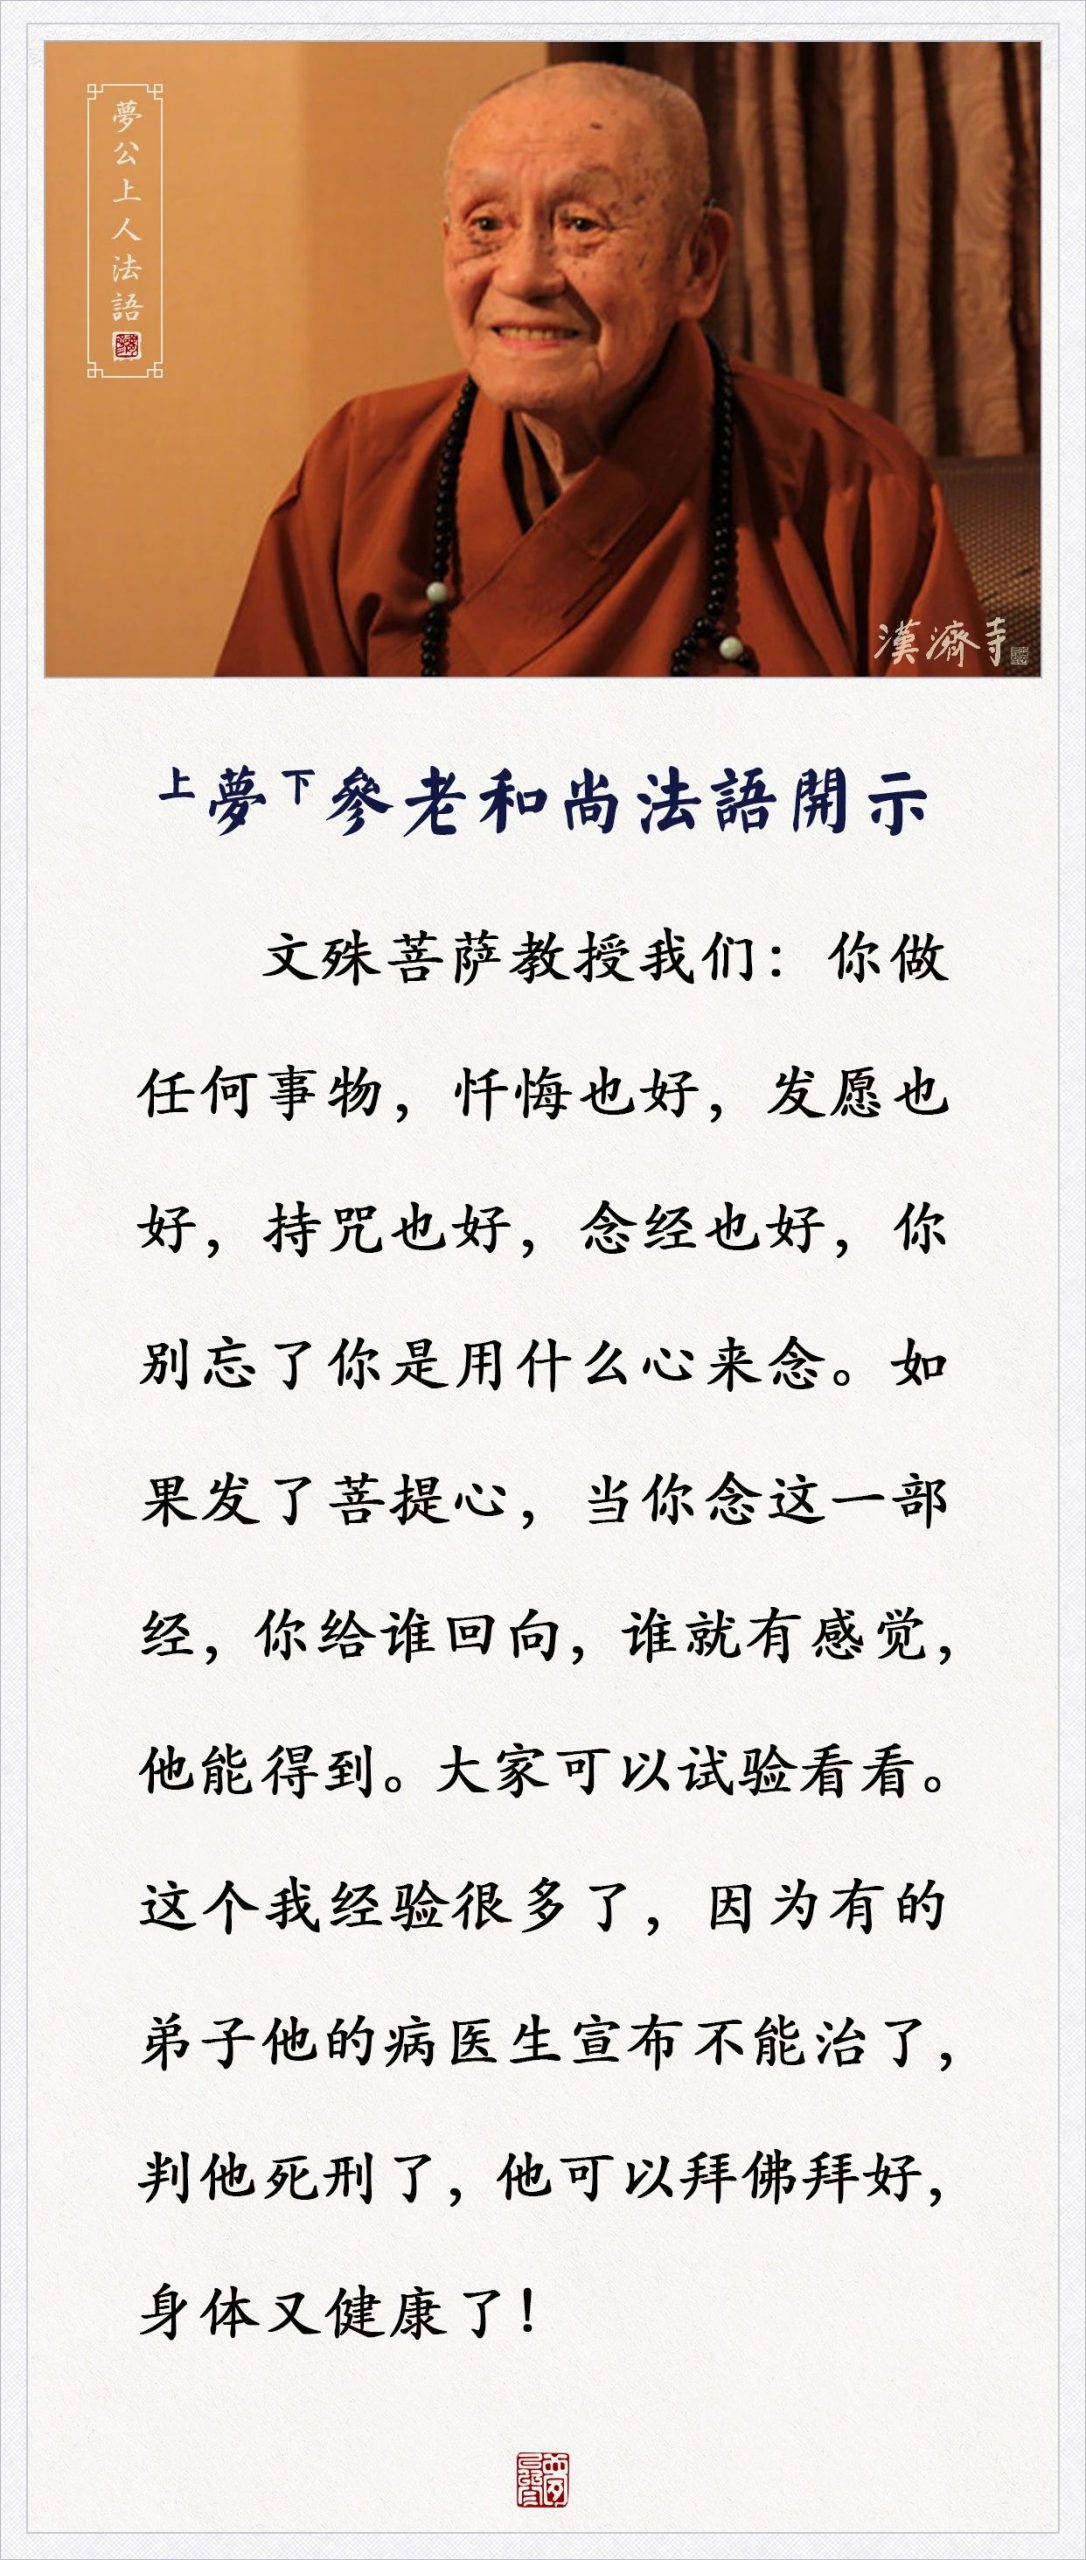 夢公上人法語
漢濟寺
上夢下參老和尚法語開示
文殊菩萨教授我们：你做
任何事物，忏悔也好，发愿也
好，持咒也好，念经也好，你
别忘了你是用什么心来念。如
果发了菩提心，当你念这一部
经，你给谁回向，谁就有感觉，
他能得到。大家可以试验看看。
这个我经验很多了，因为有的
弟子他的病医生宣布不能治了，
判他死刑了，他可以拜佛拜好，
身体又健康了！